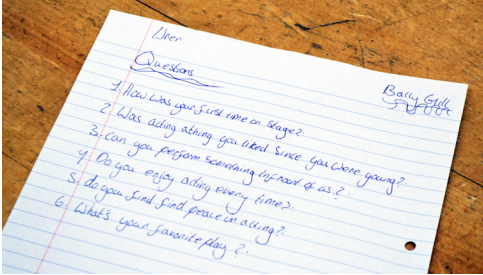 Questions
Bally Gill
1. How was your first time on stage?
2. Was acting a thing you liked since you were young?
3. Can you perform something infront of us?
4. Do you enjoy acting every time?
5. do you find find peace in acting?
6. What's your favorite play?